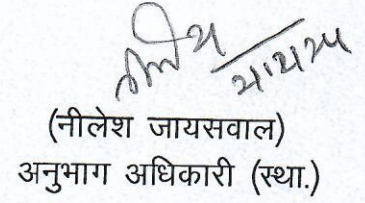 (नीलेश जायसवाल)
अनुभाग अधिकारी (स्था.)